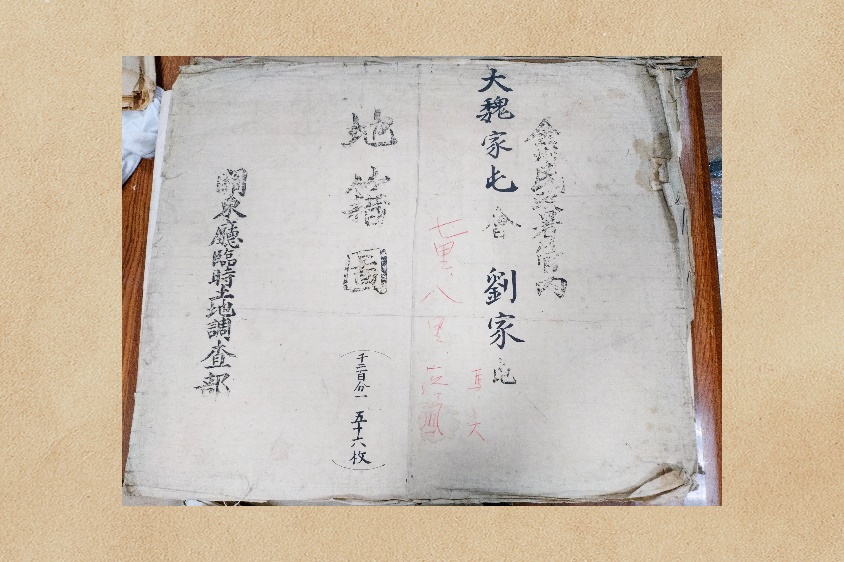 金州民政署管内
大魏家屯會 劉家屯
七里、八里、
地籍圖
(千二百分一 五十六枚)
關東廳臨時土地調查部